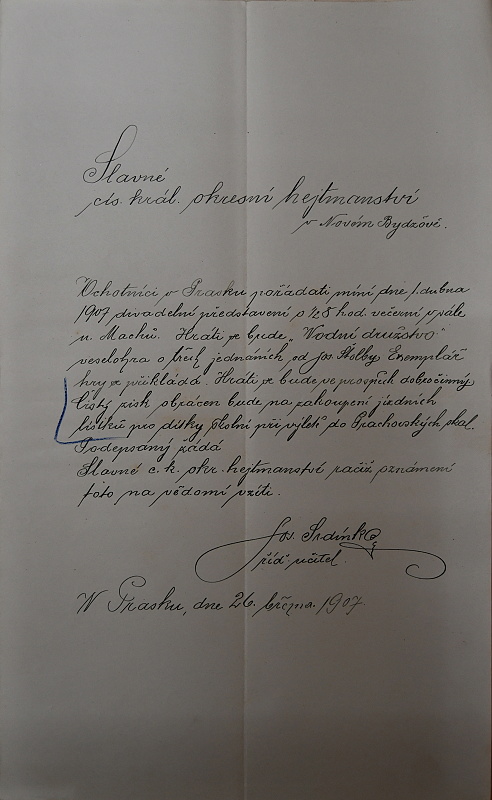 Slavné
cís. král. okresní hejtmanství
v Novém Bydžově.
Ochotníci v Prasku pořádati míní dne 1. dubna
1907 divadelní představení o ½8 hod. večerní v sále
u Machů. Hráti se bude „Vodní družstvo"
veselohra o třech jednáních od Jos. Štolby Exemplář
hry se přikládá. Hráti se bude ve prospěch dobročinný
Čistý zisk obrácen bude na zakoupení jízdních
lístků pro dítky školní při výletě do Prachovských skal.
Podepsaný žádá
Slavné c. k. okr. hejtmanství račiž oznámení
toto na vědomí vzíti.
Jos. Srdínko
říd. učitel.
W Prasku, dne 26. března 1907.